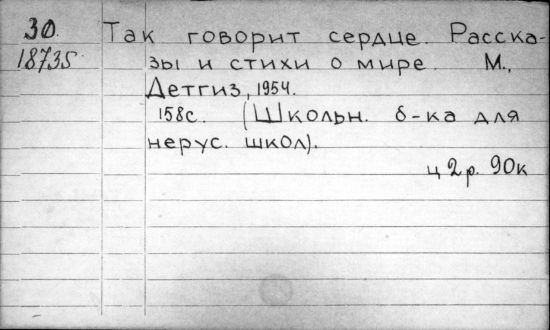 30. Так говорит сердце. Расска-
18735 зы и стихи о мире. М.,
Детгиз, 1954.
158с. (Школьн. б-ка для
нерус. школ).
ц 2р. 90к